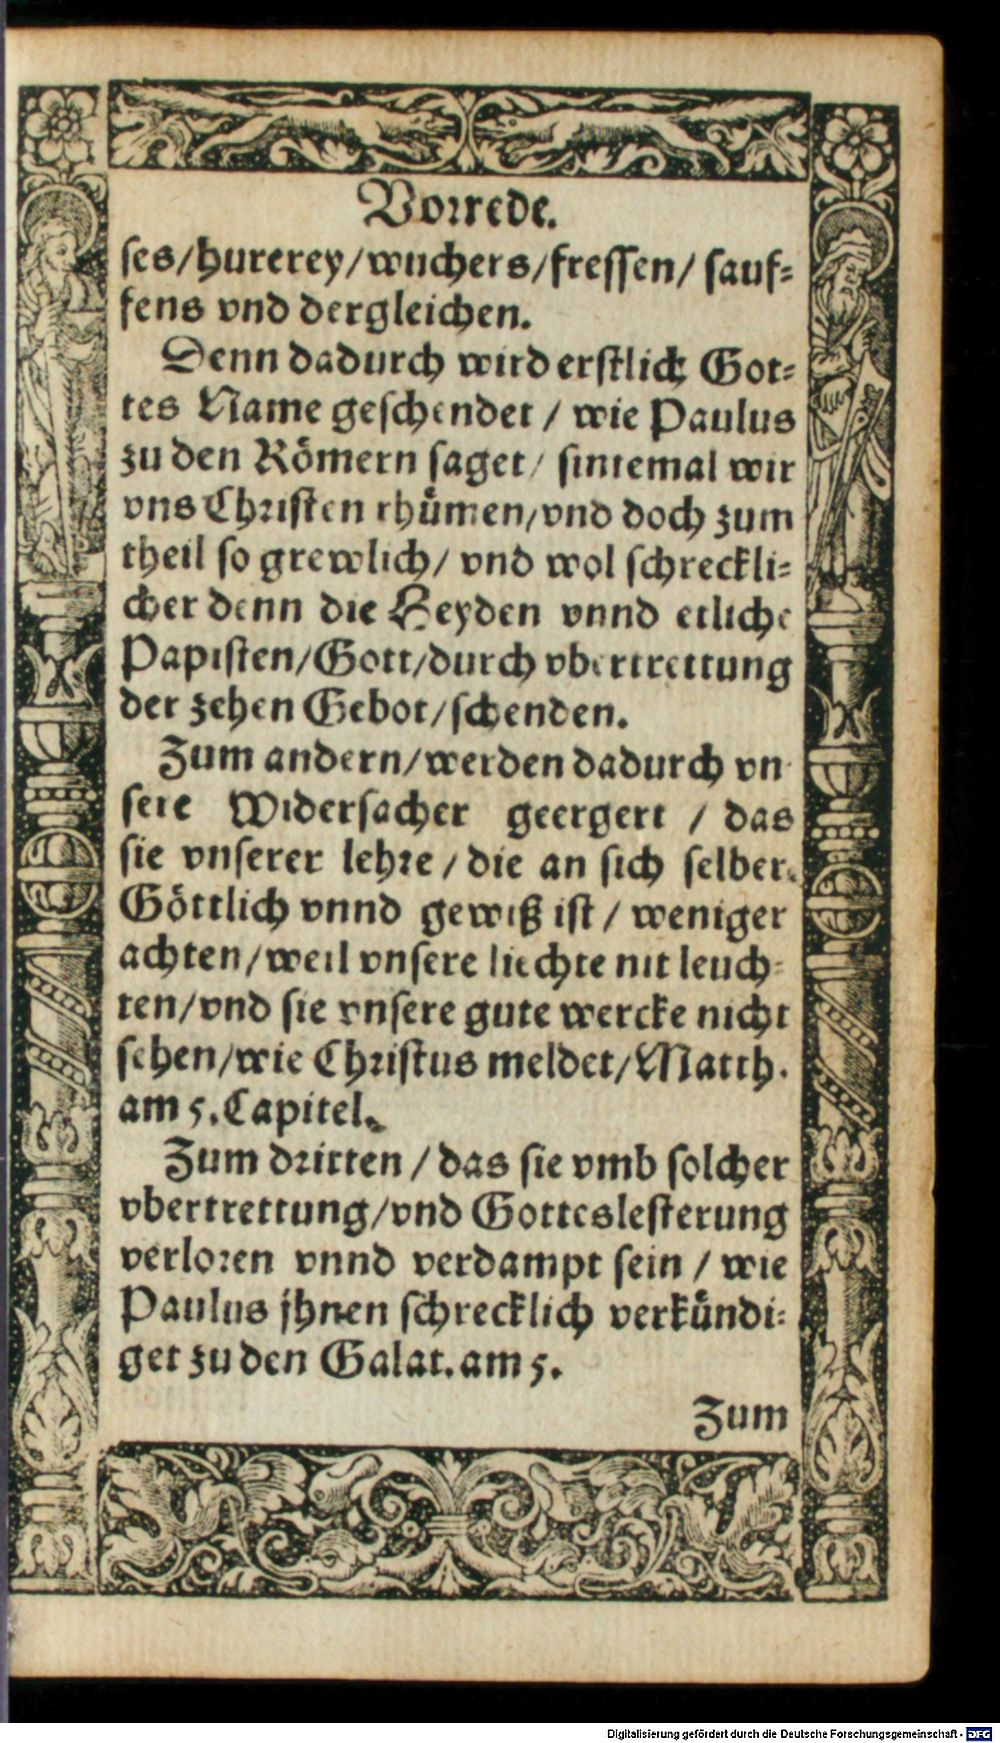 Vorrede.
ses/hurerey/wuchers/fressen/ sauf-
fens vnd dergleichen.
Denn dadurch wird erstlich Got-
tes Name geschendet / wie Paulus
zu den Römern saget/ sintemal wir
vns Christen rhümen/vnd doch zum
theil so grewlich/ vnd wol schreckli-
cher denn die Heyden vnnd etliche
Papisten/Gott/durch vbertrettung
der zehen Gebot/schenden.
Zum andern/werden dadurch vn
sere Widersacher geergert / das
sie vnserer lehre / die an sich selber
Göttlich vnnd gewiß ist / weniger
achten/weil vnsere liechte nit leuch-
ten/vnd sie vnsere gute wercke nicht
sehen/wie Christus meldet/Matth.
am 5. Capitel.
Zum dritten / das sie vmb solcher
vbertrettung/vnd Gotteslesterung
verloren vnnd verdampt sein / wie
Paulus jhnen schrecklich verkündi-
get zu den Galat. am 5.
Zum
Digitalisierung gefördert durch die Deutsche Forschungsgemeinschaft - DFG